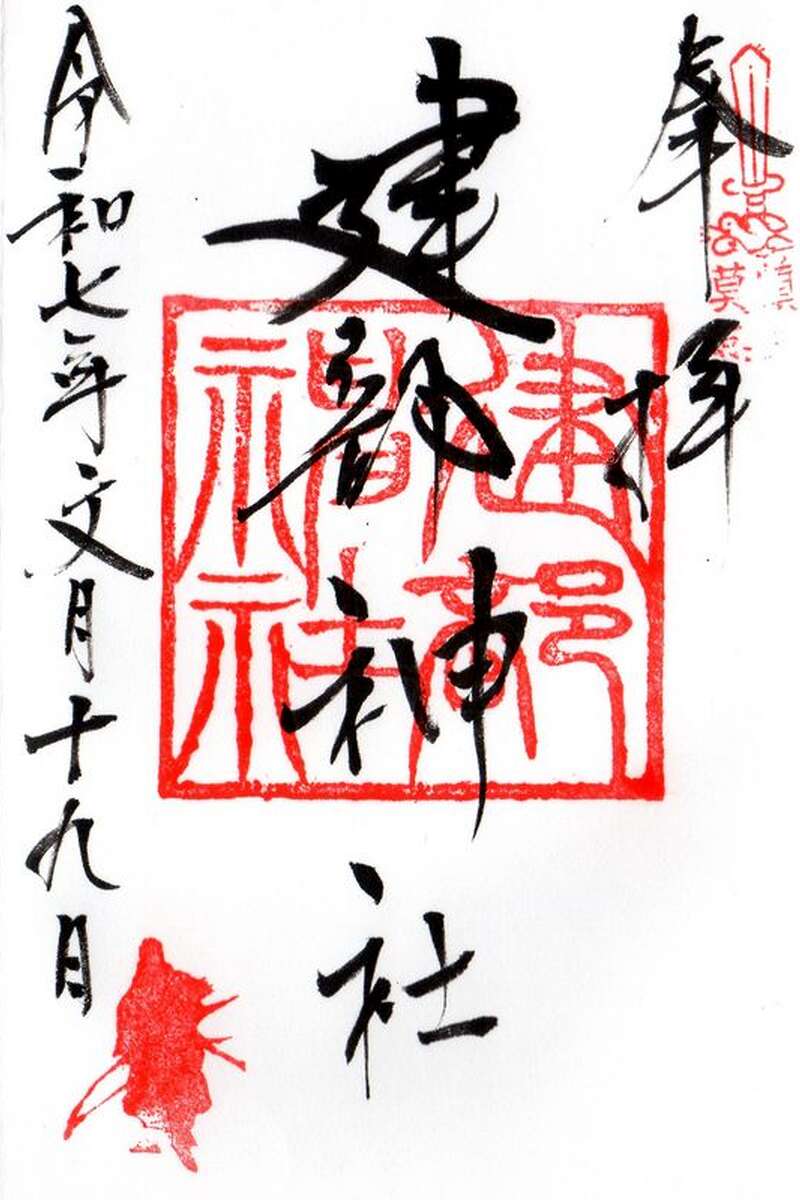 奉拝
建部神社
建部神社
令和七年文月十九日